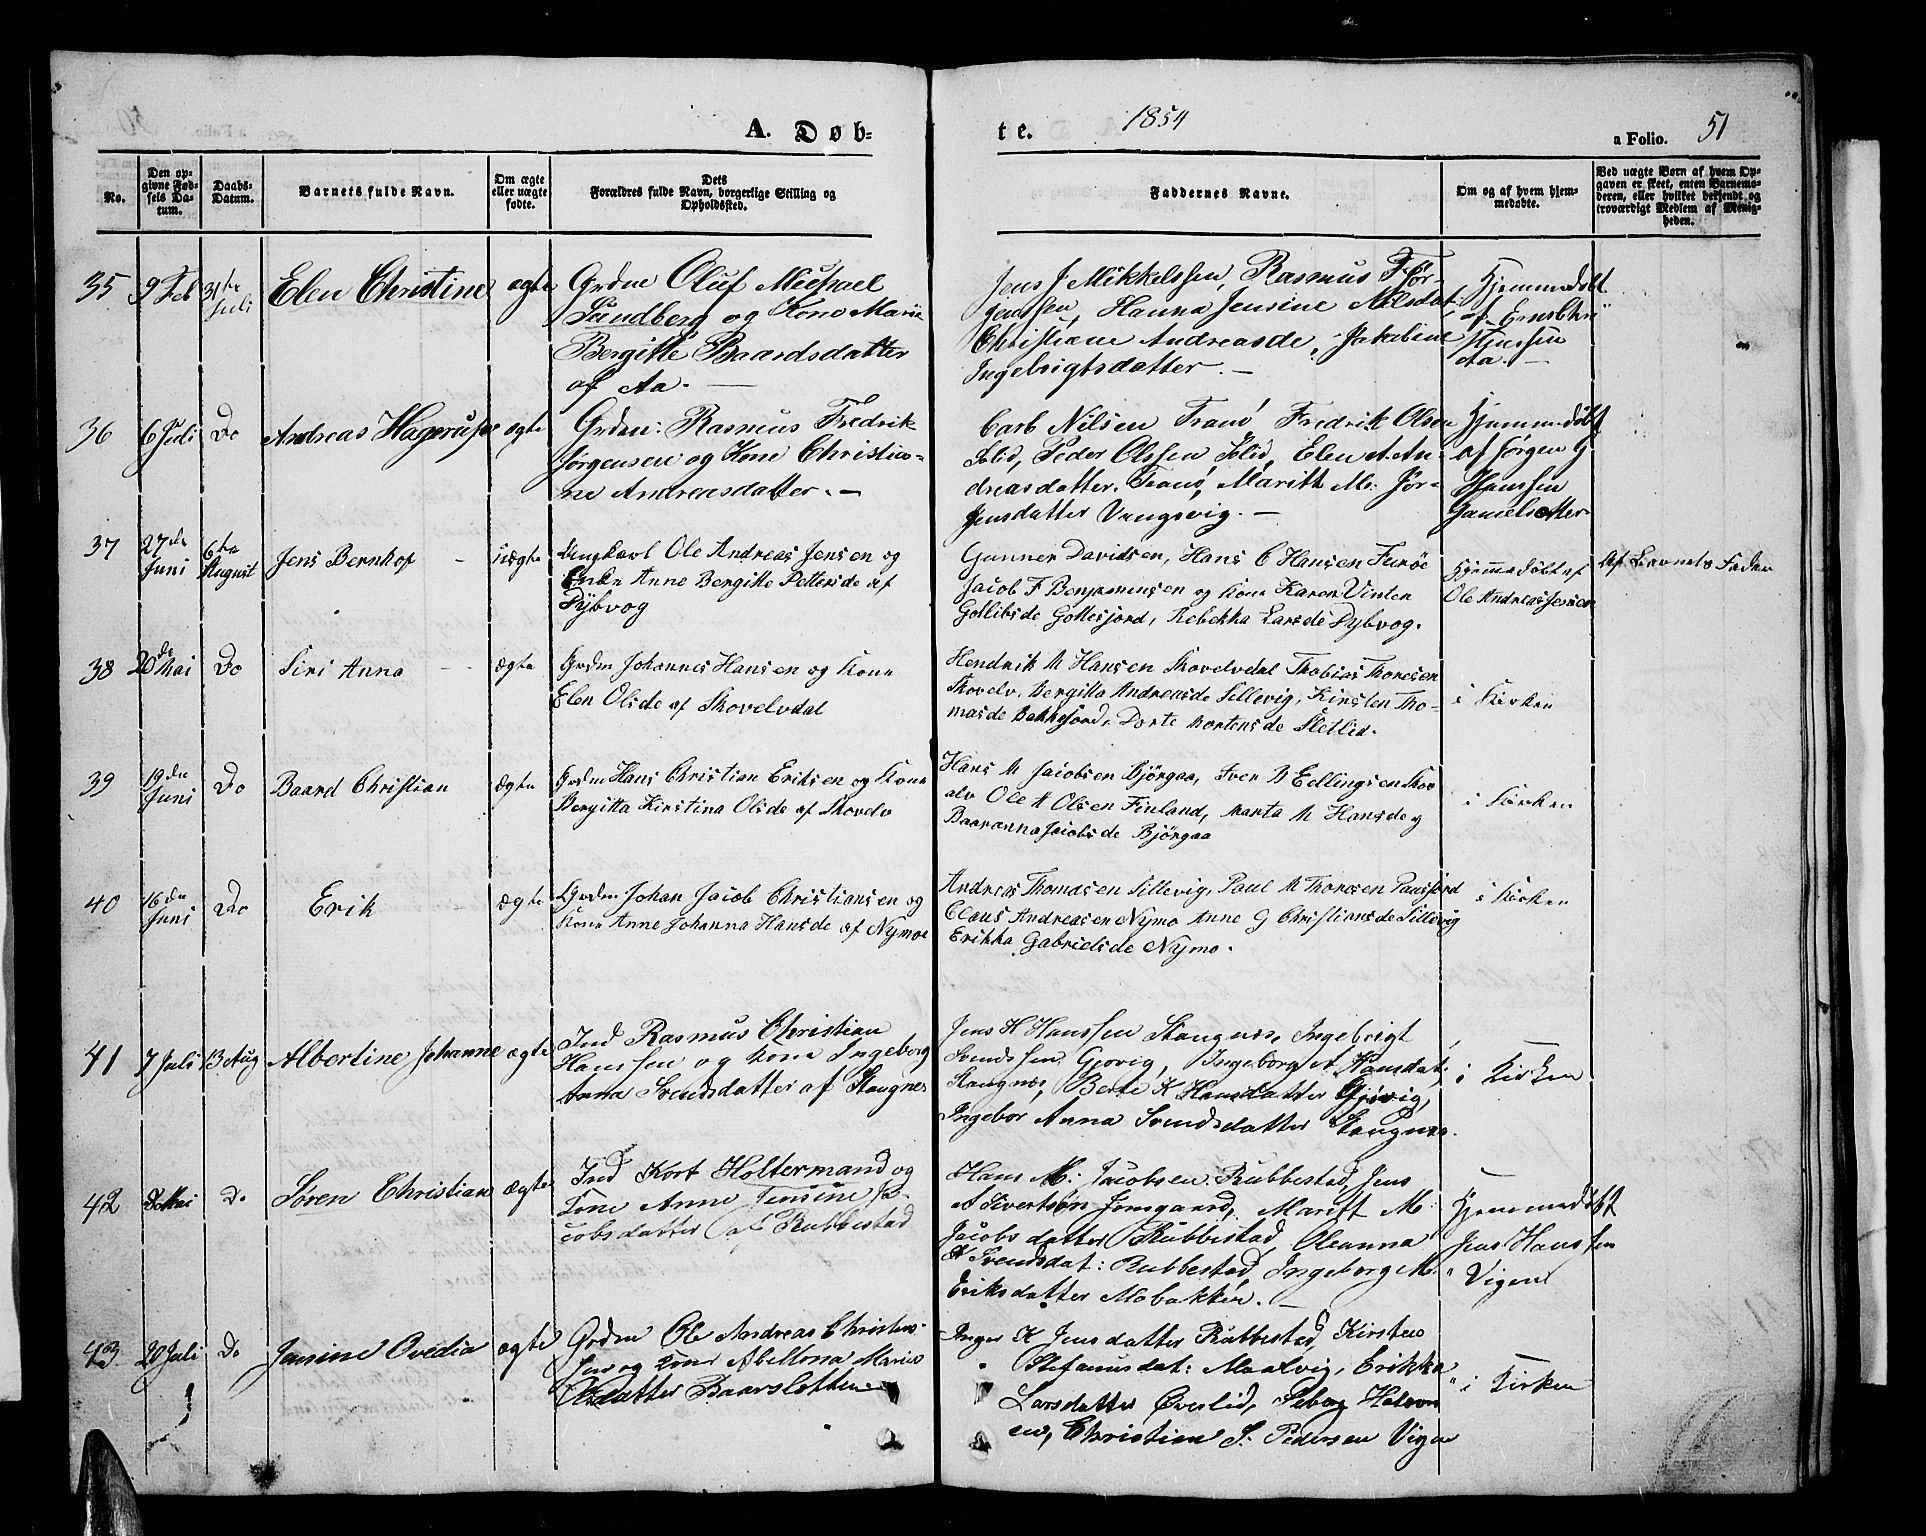 A. Døb-
te.
1854
a Folio. 51
No.
Den op-
givne Fød-
sels Da-
tum.
Daabs-
Datum.
Barnets fulde Navn.
Om ægte
eller uægte
fødte.
Dets
Forældres fulde Navn, borgerlige Stilling og
Opholdssted.
Faddernes Navne.
Om og af hvem hjem-
medøbte.
Ved uægte Børn af hvem Op-
gaven er skeet, enten Barnemo-
deren, eller hvilket bekjendt og
troværdigt Medlem af Menig-
heden.
35 9 Feb 31te Juli Elen Christine ægte
Grdm Oluf Michael
Sundberg og Kone Marie
Bergitte Baardsdatter
af Aa. —
Jens J Mikkelssen, Rasmus F Jør-
genssen, Hanna Jensine Nilsdat,
Christiane Andreasde, Jakobine
Ingebrigtsdatter. —
Hjemmedøbt
af
Aa. —
36 6 Juli Do Andreas Hagerup ægte
Grdm: Rasmus Fredrik
Jørgensen og Kone Christia-
ne Andreasdatter. —
Carl Nilsen Tranø Fredrik Olsen
Solid, Peder Olssen Solid, Elen A. An-
dreasdatter. Tranø, Maritt M: Jør-
gensdatter Vangsvig. —
Hjemmedøbt
af Jørgen G.
Hanssen
37 27de Juni 6te August Jens Bernhof - uægte
Ungkarl Ole Andreas Jensen og
Enke Anne Bergitte Pettersde af
Dybvog
Gunner Davidsen, Hans C Hansen Furøe
Jacob F Benjaminsen og Kone Karen Vinten
Gotlibsde Gottesjord, Rebekka Larsde Dybvog.
Hjemmedøbt af
Ole Andreas Jensen
Af Barnets Fader
38 20de Mai Do Siri Anna - - ægte
Grdm Johannes Hansen og Kone
Elen Olsde af Skovelvdal
Hendrik M Hansen Skovelvdal Thobias Thoresen
Skovelv, Bergitta Andreasde Sillevig, Kirsten Tho-
masde Bakkejord, Dorte Mortensde Sletlid.
i Kirken
39 19de Juni Do Baard Christian ægte
Grdm Hans Christian Eriksen og Kone
Bergitta Kirstina Olsde af Skovelv
Hans M Jacobsen Bjørgaa, Iver B Edlingsen Skov
elv Ole H Olsen Finland, Marta M Hansde og
Baaranna Jacobsde Bjørgaa
i Kirken
40 16de Juni Do Erik ægte
Grdm Johan Jacob Christiansen og
Kone Anne Johanna Hansde af Nymoe
Andreas Thomasen Sillevig, Paul M Thoresen
Claus Andreasen Nymo Anne G Christiansde Sillevig
Erikka Gabrielsde Nymo.
i Kirken
41 7 Juli 13 Aug Albertine Johanne ægte
Ind Rasmus Christian
Hanssen og Kone Ingeborg
Anna Svendsdatter af Stangnes
Jens H Hanssen Stangnes, Ingebrigt
Svendssen Gjøvig, Ingeborg A Hansdat,
Stangnes, Berte K Hansdatter Gjøvig,
Ingebor Anna Svendsdatter Stangnes.
i Kirken
42 Mai Do Søren Christian ægte
Ind Kort Holtermand og
Kone Anne Jensine Ja-
cobsdatter af Rubbestad
Hans M: Jacobsen Rubbestad, Jens
A Sivertsøn Jonsgaard, Maritt M:
Jacobsdatter Rubbestad, Oleanna
K Svendsdat: Rubbestad, Ingeborg M.
Eriksdatter Mobakken. —
Hjemmedøbt
Jens Hanssen
Vigen
43 20 Juli Do Jensine Ovedia ægte
Grdm Ole Andreas Christens-
sen og Kone Abellona Marie
Olsdatter Baarsletten
Inger K Jensdatter Rubbestad, Kirsten
Stefanusdat: Maalvig, Erikka
Larsdatter Øverlid,
en, Christian S. Pedersen Vigen
i Kirken